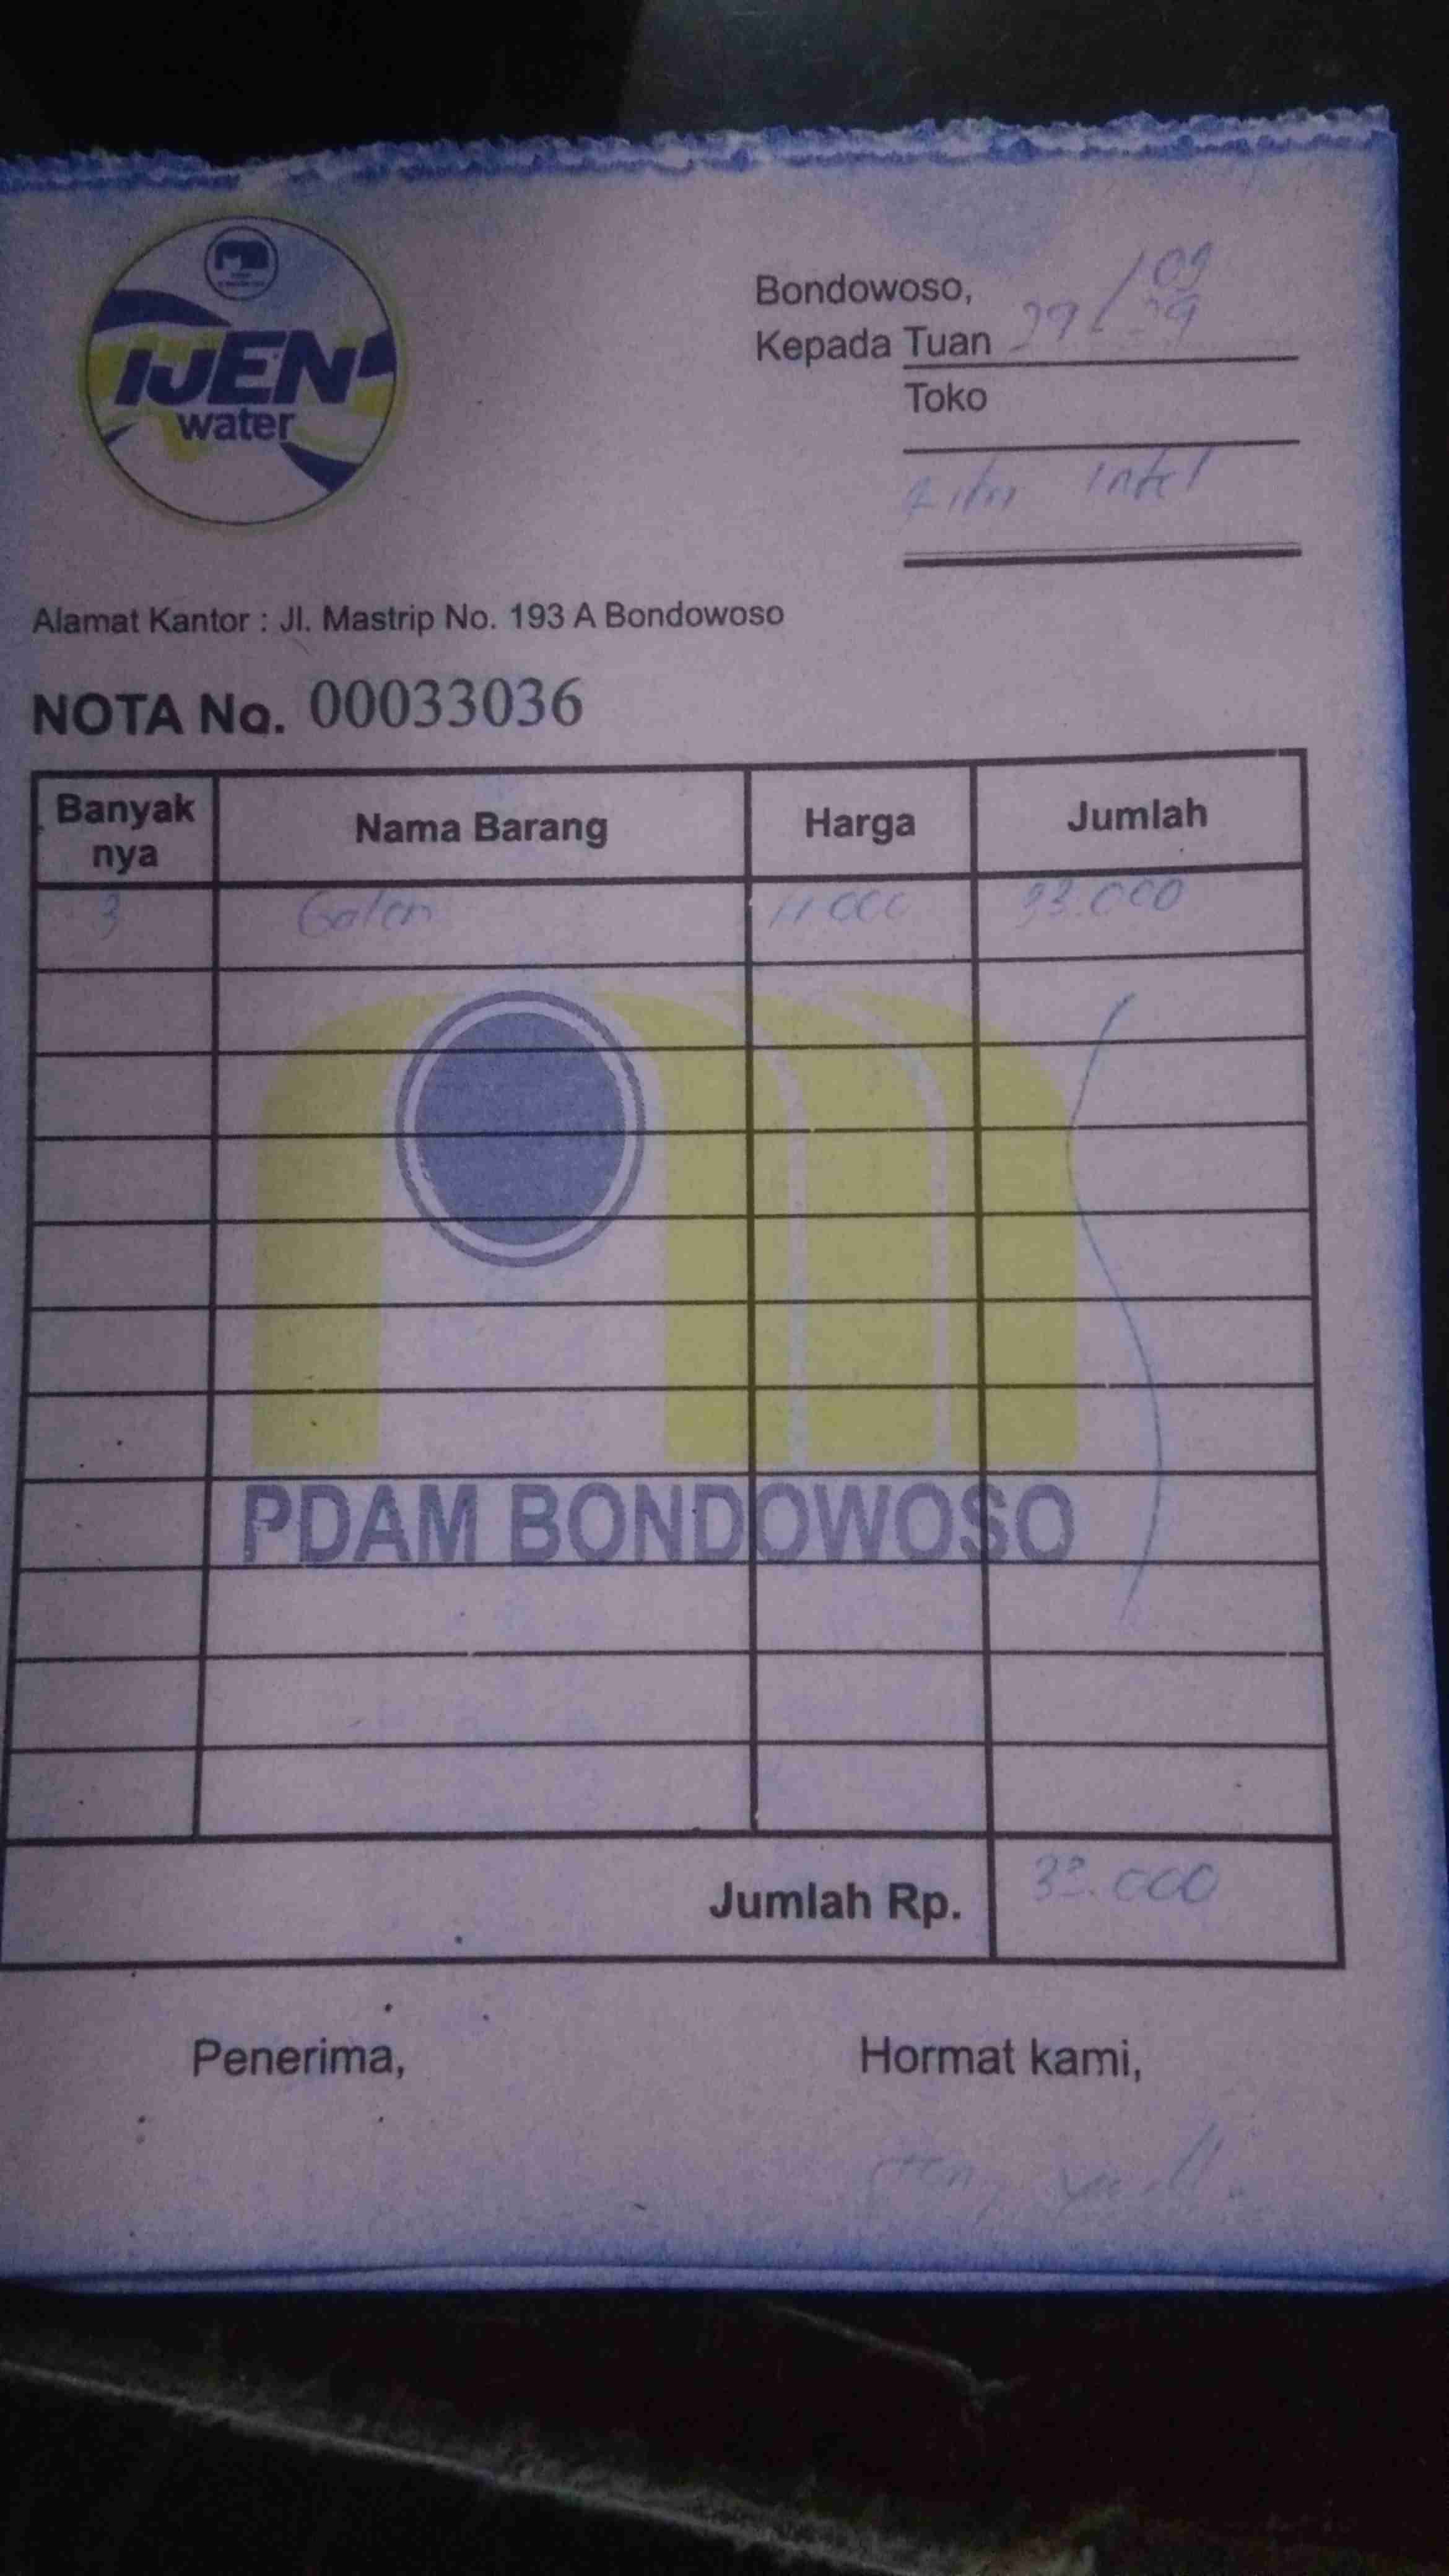 IJEN
water
Bondowoso,
Kepada Tuan
Toko
Intel
Alamat Kantor : Jl. Mastrip No. 193 A Bondowoso
NOTA No. 00033036
Banyak nya Nama Barang Harga Jumlah
3 Galon 11 000 33.000
PDAM BONDOWOSO
Jumlah Rp. 33.000
Penerima, Hormat kami,